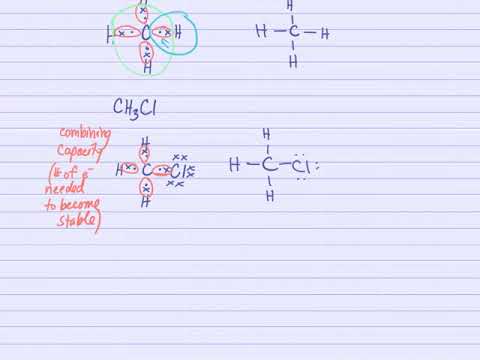 H
H x· C ·x H
H
H
H—C—H
H
CH₃Cl
combining
capacity
(# of e⁻
needed
to become
stable)
H
H x· C ·x Cl
H
H
H—C—Cl:
H